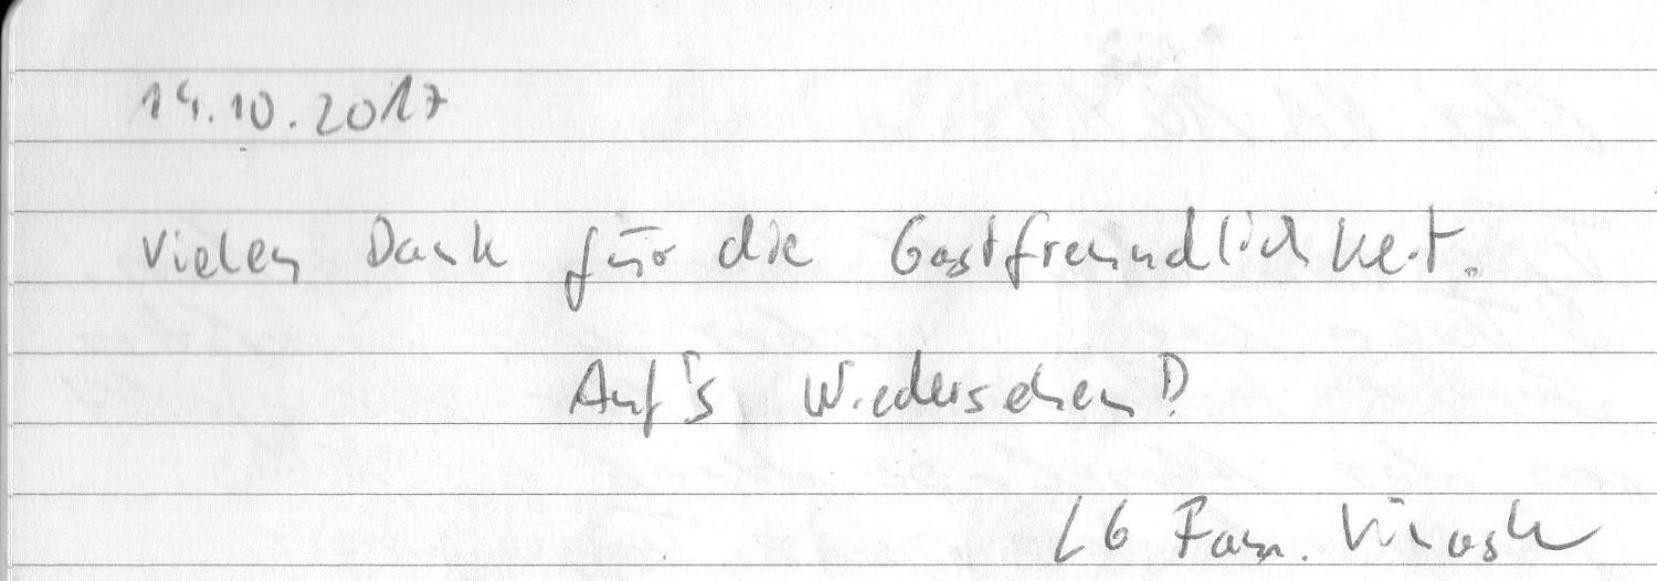 14.10.2017
Vielen Dank für die Gastfreundlichkeit.
Auf's Wiedersehen!
LG Fam.